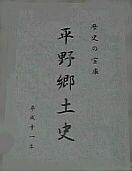 歴史の宝庫
平野郷土史
平成十一年